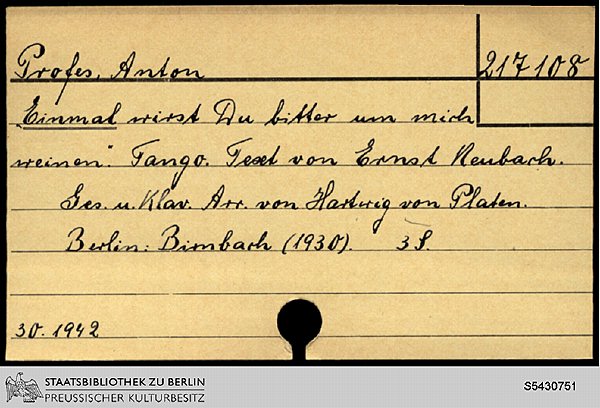 Profes, Anton
217108
„Einmal wirst Du bitter um mich
weinen". Tango. Text von Ernst Neubach.
Ges. u. Klav. Arr. von Hartwig von Platen.
Berlin: Birnbach (1930). 3 S.
30. 1942
STAATSBIBLIOTHEK ZU BERLIN
PREUSSISCHER KULTURBESITZ
S5430751